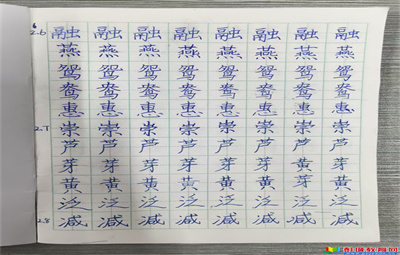 2.6 融 融 融 融 融 融 融 融
燕 燕 燕 燕 燕 燕 燕 燕
鸳 鸳 鸳 鸳 鸳 鸳 鸳 鸳
鸯 鸯 鸯 鸯 鸯 鸯 鸯 鸯
惠 惠 惠 惠 惠 惠 惠 惠
2.7 崇 崇 崇 崇 崇 崇 崇 崇
芦 芦 芦 芦 芦 芦 芦 芦
芽 芽 芽 芽 芽 芽 黄 芽
黄 黄 黄 黄 黄 黄 黄 黄
泛 泛 泛 泛 泛 泛 泛 泛
2.8 减 减 减 减 减 减 减 减